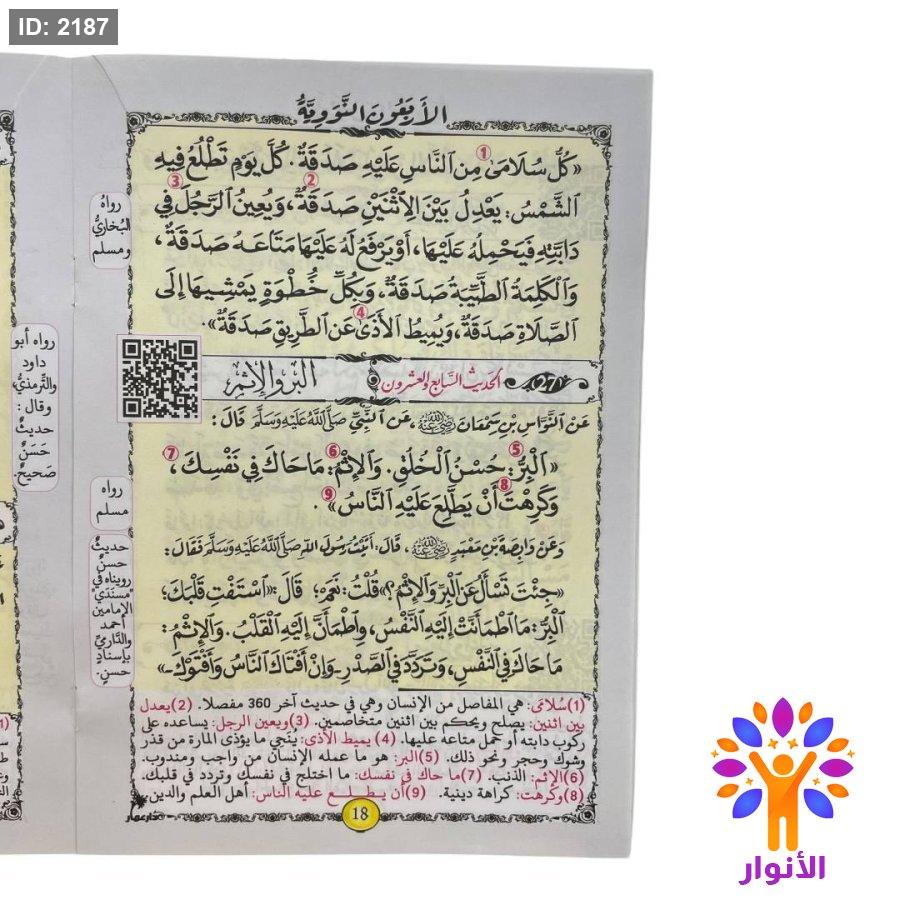 ID: 2187
الأَرْبَعُونَ النَّوَوِيَّةُ
«كُلُّ سُلَامَىٰ مِنَ النَّاسِ عَلَيْهِ صَدَقَةٌ. كُلَّ يَوْمٍ تَطْلُعُ فِيهِ
الشَّمْسُ: يَعْدِلُ بَيْنَ الِاثْنَيْنِ صَدَقَةٌ، وَيُعِينُ الرَّجُلَ فِي
دَابَّتِهِ فَيَحْمِلُهُ عَلَيْهَا، أَوْ يَرْفَعُ لَهُ عَلَيْهَا مَتَاعَهُ صَدَقَةٌ،
وَالْكَلِمَةُ الطَّيِّبَةُ صَدَقَةٌ، وَبِكُلِّ خُطْوَةٍ يَمْشِيهَا إِلَى
الصَّلَاةِ صَدَقَةٌ، وَيُمِيطُ الْأَذَىٰ عَنِ الطَّرِيقِ صَدَقَةٌ».
رواهُ
البُخاريُّ
ومسلم
27 الحديث السابع والعشرون البر والإثم
عَنِ النَّوَّاسِ بْنِ سَمْعَانَ رَضِيَ اللَّهُ عَنْهُ، عَنِ النَّبِيِّ صَلَّى اللَّهُ عَلَيْهِ وَسَلَّمَ قَالَ:
«الْبِرُّ: حُسْنُ الْخُلُقِ. وَالْإِثْمُ: مَا حَاكَ فِي نَفْسِكَ،
وَكَرِهْتَ أَنْ يَطَّلِعَ عَلَيْهِ النَّاسُ».
رواه
مسلم
وَعَنْ وَابِصَةَ بْنِ مَعْبَدٍ رَضِيَ اللَّهُ عَنْهُ، قَالَ: أَتَيْتُ رَسُولَ اللَّهِ صَلَّى اللَّهُ عَلَيْهِ وَسَلَّمَ فَقَالَ:
«جِئْتَ تَسْأَلُ عَنِ الْبِرِّ وَالْإِثْمِ؟» قُلْتُ: نَعَمْ؛ قَالَ: «اسْتَفْتِ قَلْبَكَ؛
الْبِرُّ: مَا اطْمَأَنَّتْ إِلَيْهِ النَّفْسُ، وَاطْمَأَنَّ إِلَيْهِ الْقَلْبُ. وَالْإِثْمُ:
مَا حَاكَ فِي النَّفْسِ، وَتَرَدَّدَ فِي الصَّدْرِ - وَإِنْ أَفْتَاكَ النَّاسُ وَأَفْتَوْكَ -»
حديثٌ
حسنٌ
رويناه في
"مسندَي"
الإمامين
أحمد
والدَّارميِّ
بإسنادٍ
حسنٍ.
(1)سُلامى: هي المفاصل من الإنسان وهي في حديث آخر 360 مفصلا. (2)يعدل
بين اثنين: يصلح ويحكم بين اثنين متخاصمين. (3)ويعين الرجل: يساعده على
ركوب دابته أو حمل متاعه عليها. (4) يميط الأذى: يُنَحِّي ما يؤذى المارة من قذر
وشوك وحجر ونحو ذلك. (5)البر: هو ما عمله الإنسان من واجب ومندوب.
(6)الإثم: الذنب. (7)ما حاك في نفسك: ما اختلج في نفسك وتردد في قلبك.
(8)وكرهت: كراهة دينية. (9)أن يطلع عليه الناس: أهل العلم والدين.
18
دار عمار
رواه أبو
داود
والتِّرمذيُّ
وقال:
حديثٌ
حَسَنٌ
صَحيحٌ.
الأنوار